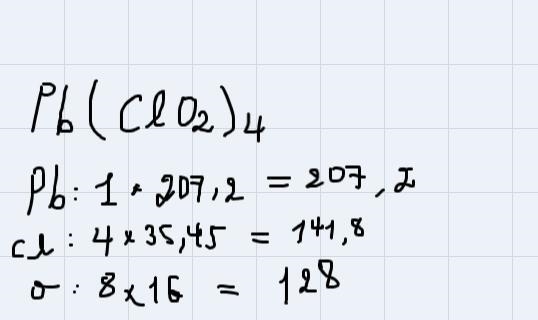 Pb(ClO₂)₄
Pb: 1 × 207,2 = 207,2
Cl: 4 × 35,45 = 141,8
O: 8 × 16 = 128